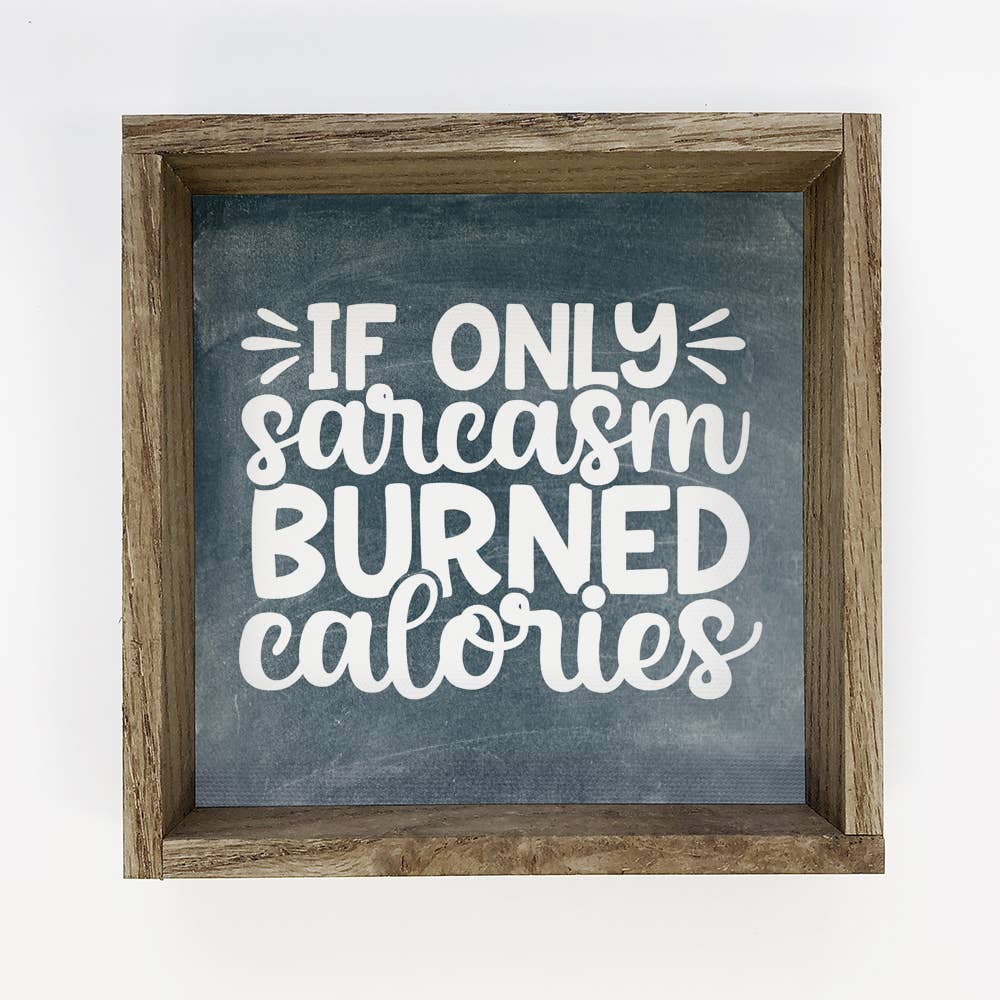 IF ONLY
sarcasm
BURNED
calories